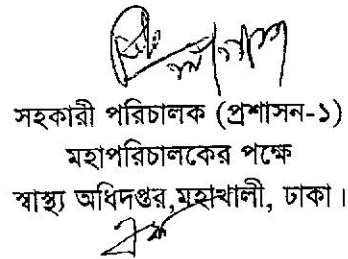 সহকারী পরিচালক (প্রশাসন-১)
মহাপরিচালকের পক্ষে
স্বাস্থ্য অধিদপ্তর,মহাখালী, ঢাকা।